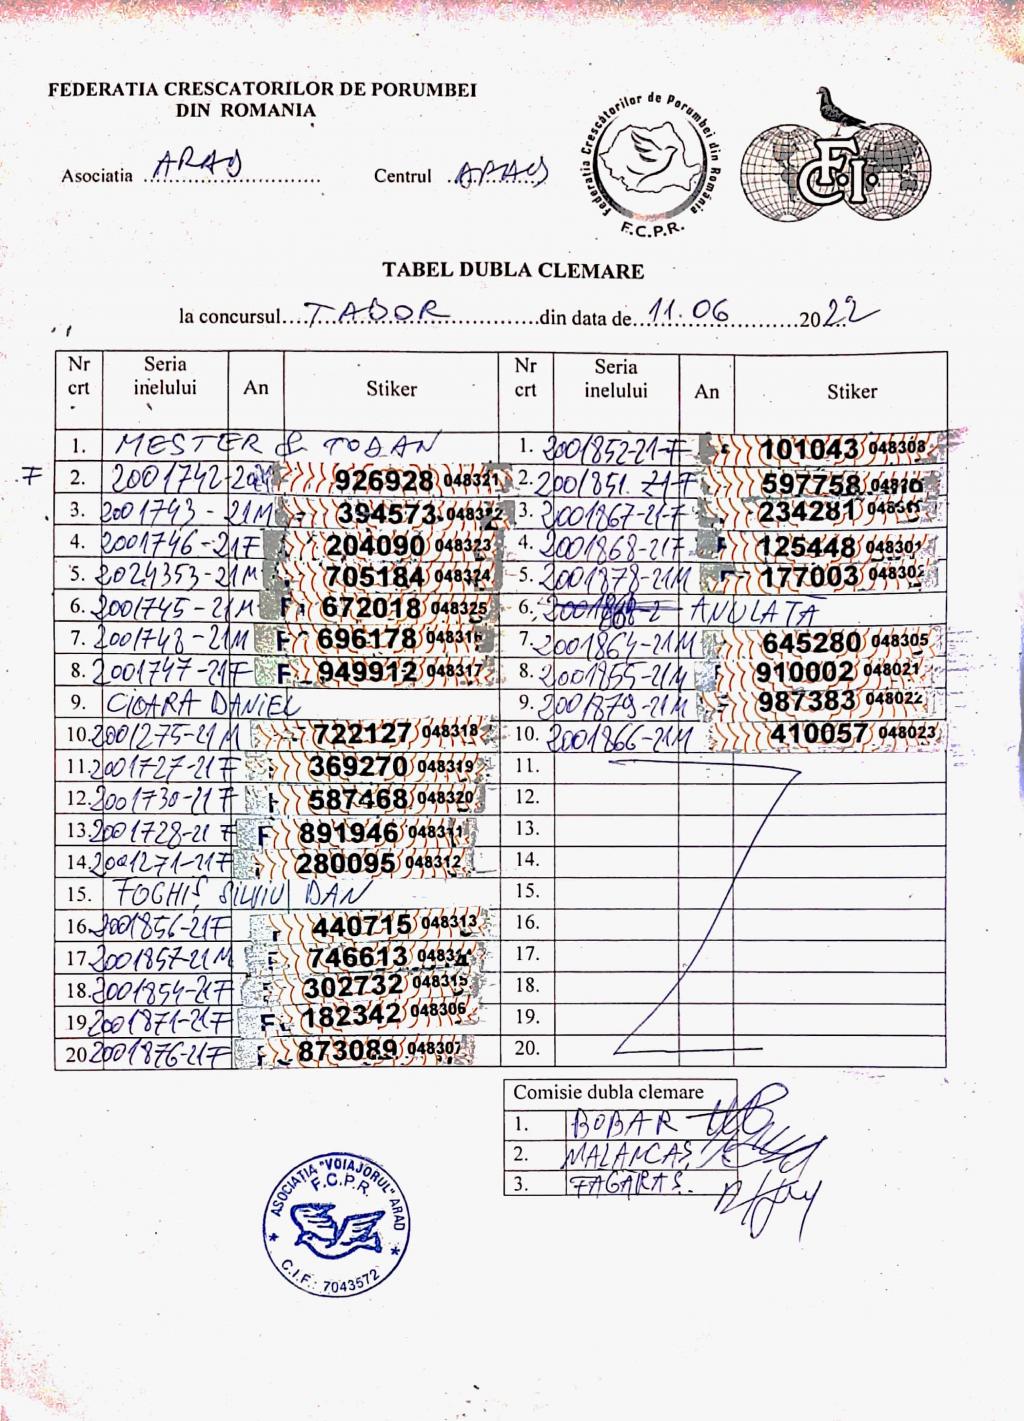 FEDERATIA CRESCATORILOR DE PORUMBEI
DIN ROMANIA
Asociatia ARAD Centrul ARAD
Federatia Crescătorilor de Porumbei din România
F.C.P.R.
F.C.I.
TABEL DUBLA CLEMARE
la concursul TABOR din data de 11.06 2022
Nr crt Seria inelului An Stiker Nr crt Seria inelului An Stiker
1. MESTER & TODAN 1. 2001852-21-F 101043 048308
F 2. 2001742- 926928 048321 2. 2001851-21-F 597758
3. 2001743-21M 394573 048322 3. 2001867-21-F 234281
4. 2001746-21F 204090 048323 4. 2001868-21F 125448 048301
5. 2024353-21M 705184 048324 5. 2001878-21M 177003
6. 2001745-21M F 672018 048325 6. ANULATĂ
7. 2001748-21M F 696178 048316 7. 2001864-21M 645280 048305
8. 2001747-21F F 949912 048317 8. 2001855-21M 910002 048021
9. CIOARA DANIEL 9. 2001879-21M 987383 048022
10. 2001275-21M 722127 048318 10. 2001866-21M 410057 048023
11. 2001727-21F 369270 048319 11.
12. 2001730-21F 587468 048320 12.
13. 2001728-21F F 891946 048311 13.
14. 2001271-21F 280095 048312 14.
15. FOGHIȘ SILVIU DAN 15.
16. 2001856-21F 440715 048313 16.
17. 2001857-21M 746613 17.
18. 2001854-21F 302732 048315 18.
19. 2001871-21F F 182342 048306 19.
20 2001876-21F 873089 048307 20.
Comisie dubla clemare
1. BOBAR
2. MALANCAȘ
3. FAGARAȘ
ASOCIATIA "VOIAJORUL" ARAD
F.C.P.R.
C.I.F.: 7043572